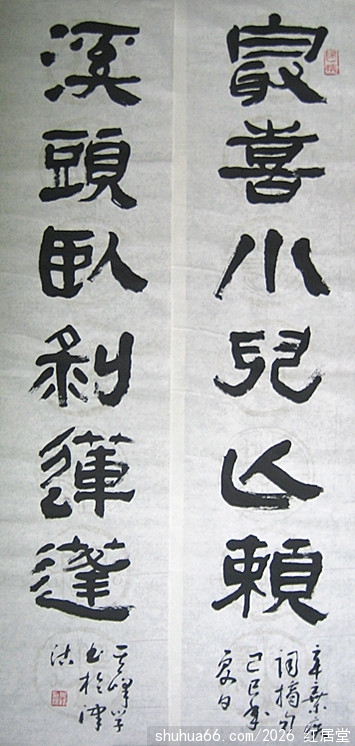 冣喜小兒亡賴
辛棄疾
词摘句
己巳年
夏日
溪頭臥剝蓮蓬
其峰学
书於津
沽
shuhua66.com/2026 红居堂